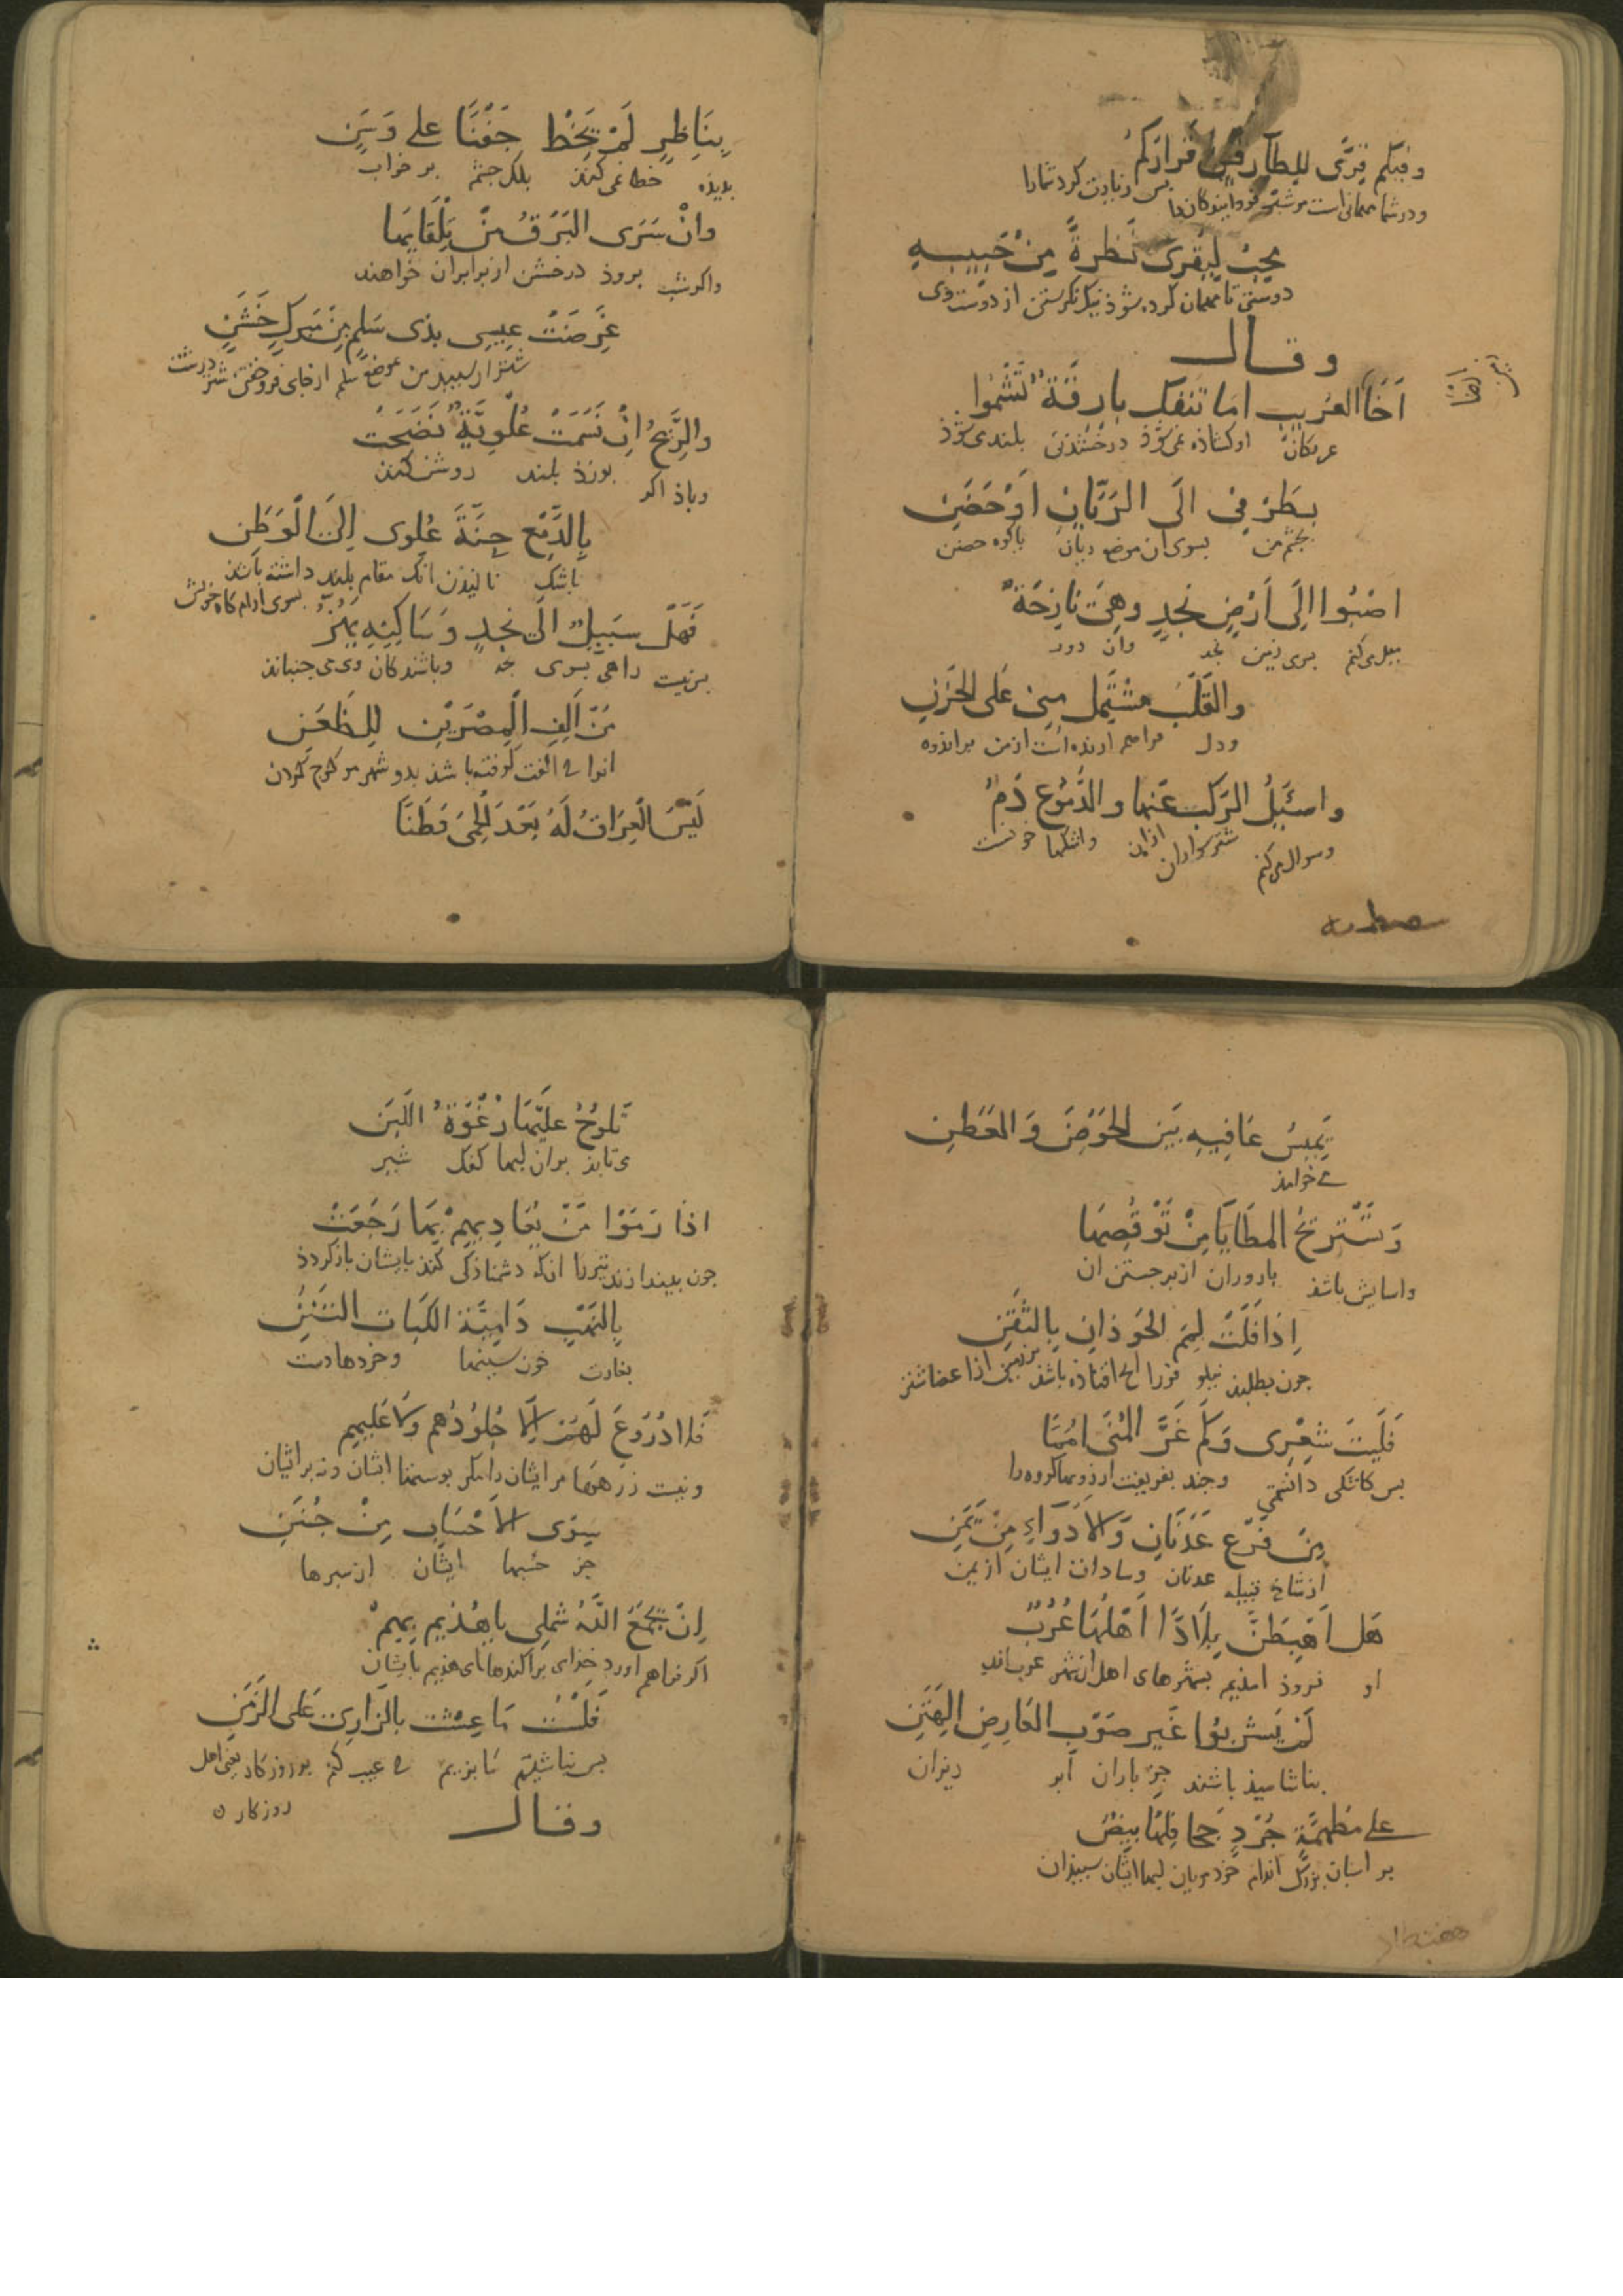 وفيكم قرى للطارقين فزاركم
ودر شما مهمانی است مر شب فرو آیندگان را بس زیارت کرد شما را
محب ليقرى نظرة من حبيبه
دوستی تا مهمان کرده شوذ نیک نگرستن از دوست وی
وقال
أخا العريب اما تنفك بارقة تسموا
عربکان او کشاذه نمی شوذ درخشندن بلندی شوذ
بطرفي الى الريان او حضن
بجشم من بسوی ان موضع ریان یا کوه حضن
اصبوا الى ارض نجد وهي نازحة
میل می کنم بسوی زمین نجد وان دور
والقلب مشتمل مني على الحزن
ودل فراهم ارنده است از من بر اندوه
واسئل الركب عنها والدموع دم
وسوال می کنم شتر سواران از ان واشکها خونست
بناظر لم يخط جفنا على وسن
بدیذه خطا نمی کند بلک جشم بر خواب
وان سرى البرق من تلقايها
واکر شب بروذ درخشن از برابران خواهند
عرضت عيسي بذي سلم من مبرك خشن
شتران سبید من موضع سلم از جای فرو خفتن شتر درشت
والريح ان نسمت علوية نضحت
وباذ اکر بوزذ بلند روشن کند
بالدمع حنة علوى الى الوطن
باشک نالیذن انک مقام بلند داشته باشد بسوی ارام کاه خویش
فهل سبيل الى نجد وساكنه يهز
بس نیست راهی بسوی نجد وباشندکان وی می جنباند
من الف المصرين للظعن
انرا که الفت کرفته باشد بدو شهر مر کوج کردن
ليس العراق له بعد الحمى وطنا
يميس عافيه بين الحوض والعطن
می خرامد
وتستريح المطايا من توقصها
واسایش باشذ بارودران از برجستن ان
اذا فلت لمم الحوذان بالثفن
جون بطلبد نیلو فررا انج افتاده باشد بر زمین از اعضا شتر
فليت شعري وكم غر المنى امما
بس کاشکی دانستمی وجند بفریفت ارزومها کروه را
من فرع عدنان والاذواء من يمن
از شاخ قبیله عدنان وسادات ایشان از یمن
هل اهبطن بلادا اهلها عرب
او فروذ امذیم بشهرهای اهل ان شهر عرب اند
لم يشربوا غير صوب العارض الهتن
بناشامیذ باشند جز باران ابر ریزان
على مطهمة جرد جحافلها بيض
بر اسبان بزرک اندام خرد مویان لبها ایشان سبیذان
تلوح عليها رغوة اللبن
می تابذ بر ان لبها کفک شیر
اذا رموا من يعاديهم بها رجعت
جون بیندازند تیر را انک دشمناذکی کند بایشان باز کردذ
بالنهب دامية اللبات الثنن
بغارت خون سینها وخردهادست
فلا دروع لهم الا جلودهم ولا عليهم
ونیست زرهها مر ایشان را مکر بوستها ایشان ونه بر ایشان
سوى الاحساب من جنن
جز حسبها ایشان از سبرها
ان يجمع الله شملي يا هذيم بهم
اکر فراهم اورد خدای براکندها ای هذیم بایشان
فلست ما عشت بالزاري على الزمن
بس نباشیتم تا بزیم که عیب کنم بر روزکار یعنی اهل روزکار
وقال